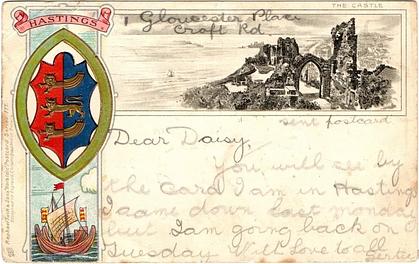 THE CASTLE
HASTINGS
1 Gloucester Place
Croft Rd.
sent postcard
Dear Daisy,
You will see by
the card I am in Hastings
I came down last monday
but I am going back on
Tuesday With love to all
Gertie